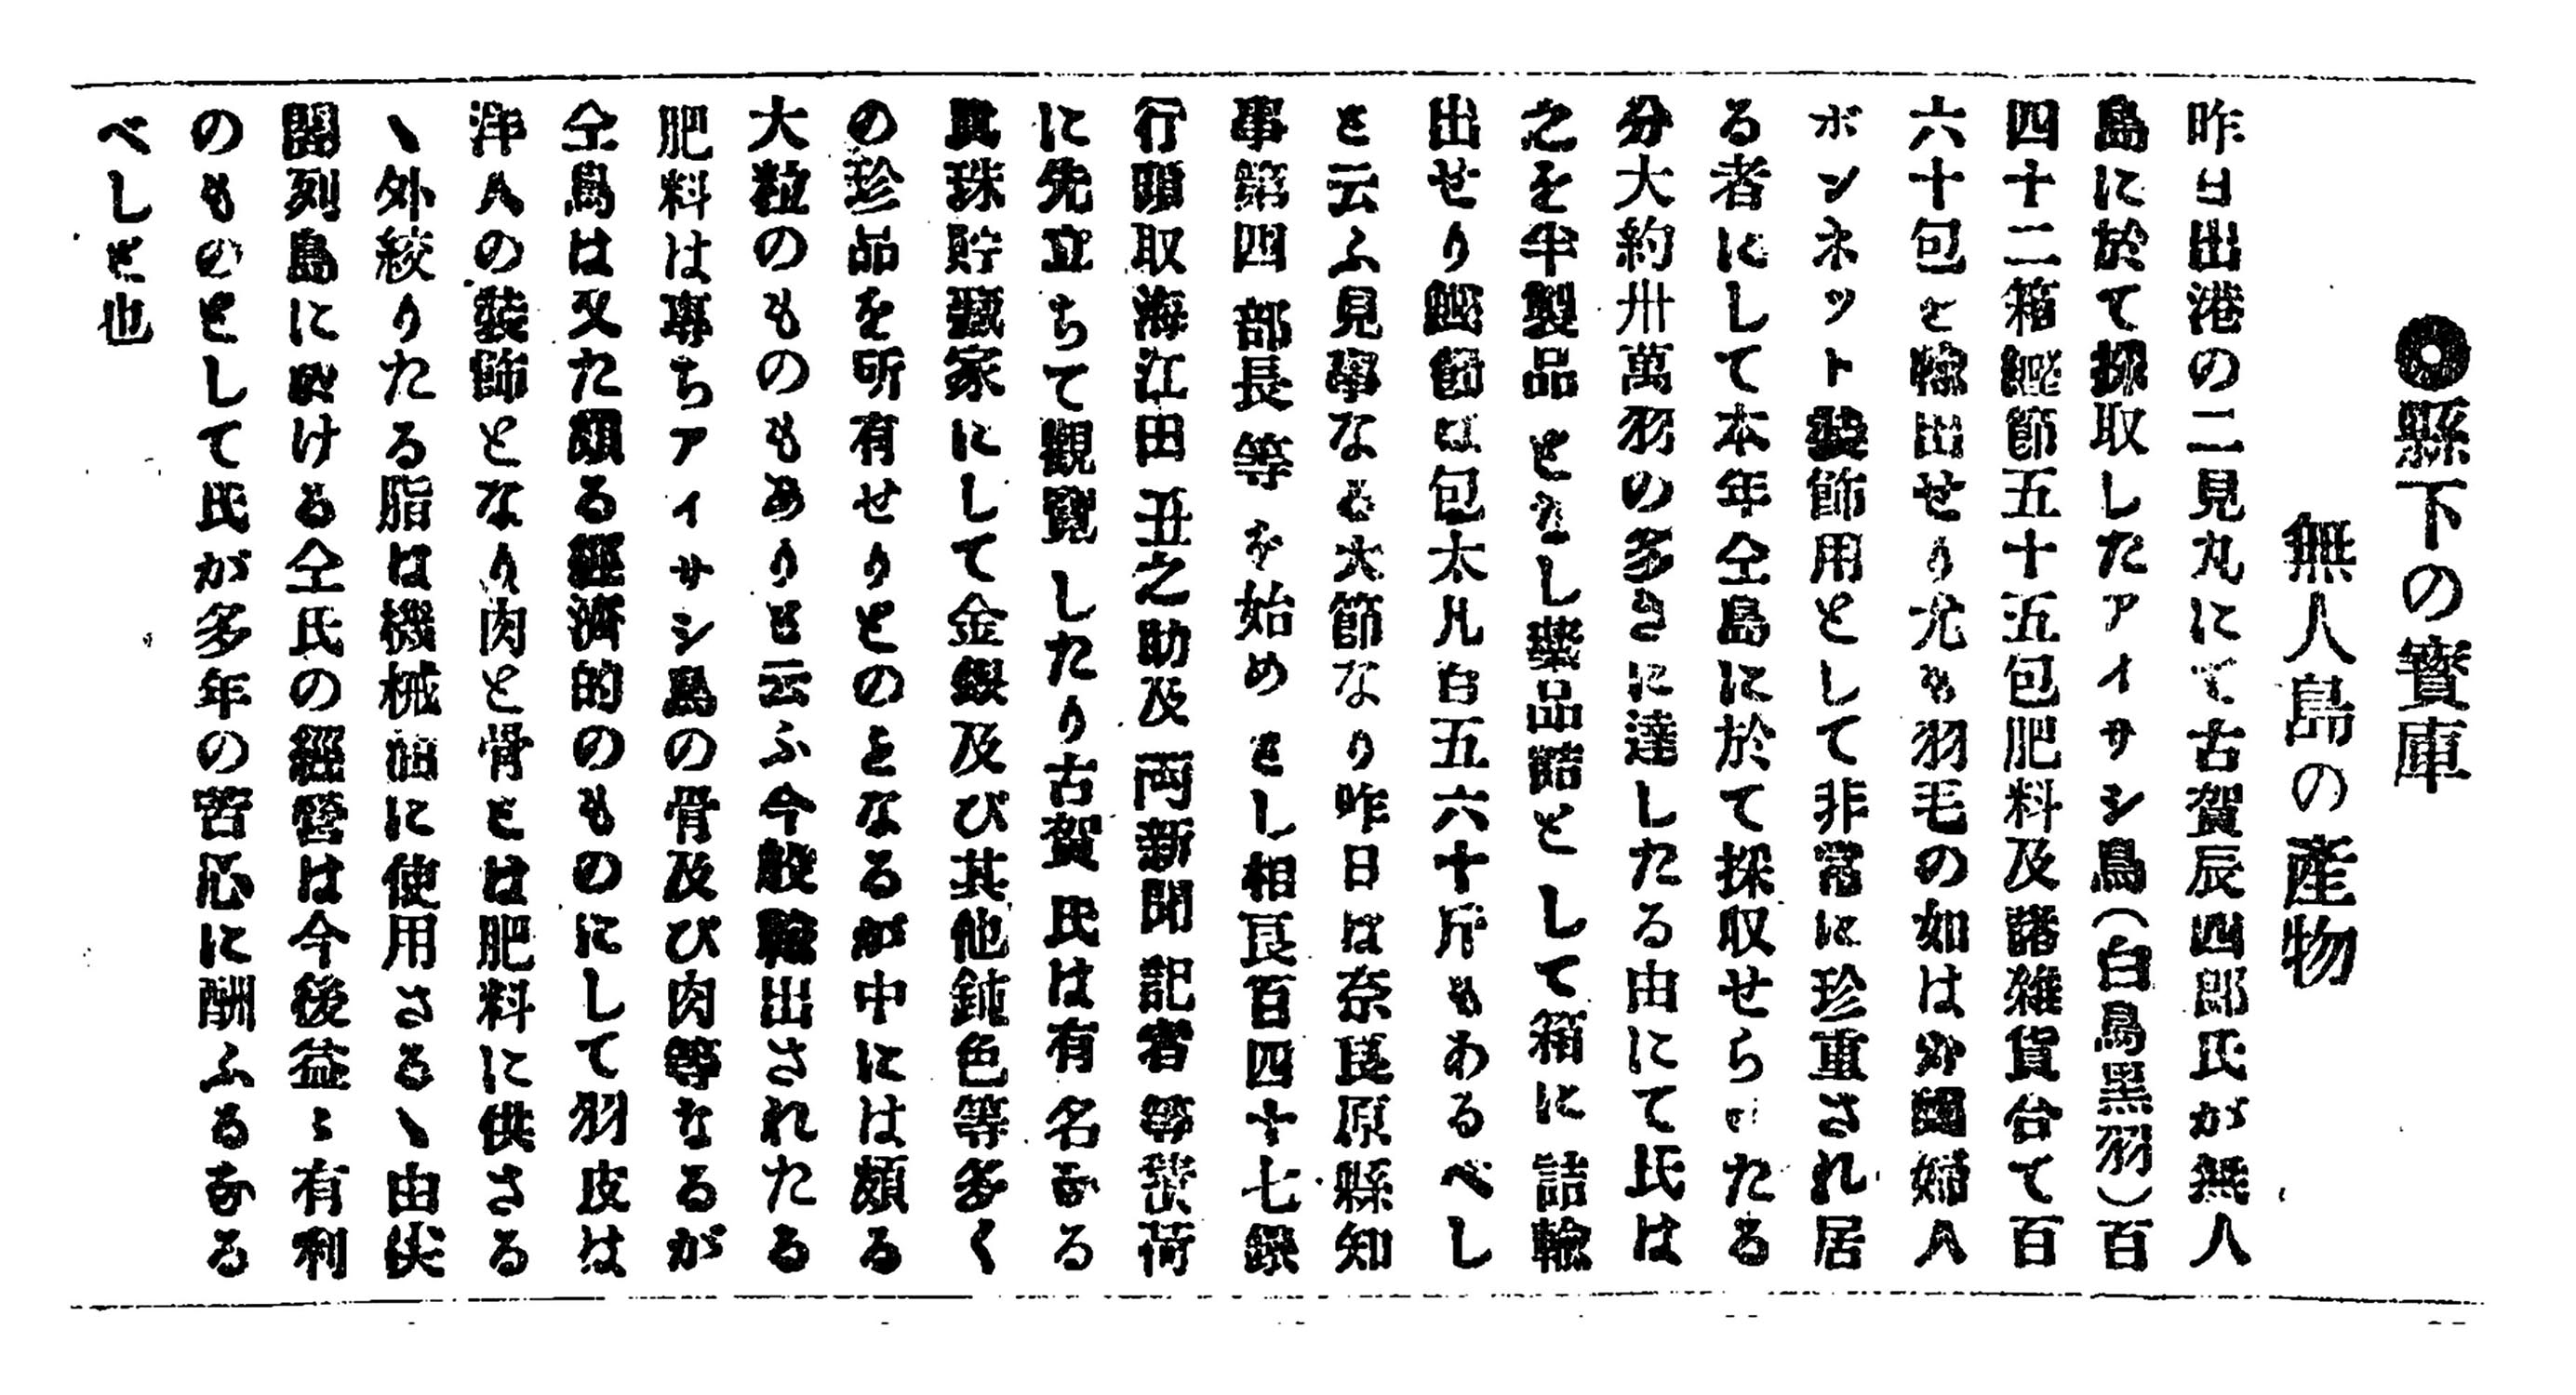 ◉縣下の寶庫
無人島の産物
昨日出港の二見丸にて古賀辰四郎氏が無人
島に於て採取したアイサシ鳥(白鳥黑羽)百
四十二箱鰹節五十五包肥料及諸雑貨合て百
六十包と輸出せり尤も羽毛の如は外國婦人
ボンネット裝飾用として非常に珍重され居
る者にして本年仝島に於て採収せられたる
分大約卅萬羽の多きに達したる由にて氏は
之を半製品となし藥品詰として箱に詰輸
出せり鰹節は包太凡百五六十斤もあるべし
と云ふ見事なる大節なり昨日は奈良原縣知
事第四部長等を始めとし相良百四十七銀
行頭取海江田丑之助及両新聞記者等發荷
に先立ちて觀覽したり古賀氏は有名なる
眞珠貯藏家にして金銀及び其他鈍色等多く
の珍品を所有せりとのとなるが中には頗る
大粒のものもありと云ふ今般輸出されたる
肥料は專ちアイサシ鳥の骨及び肉等なるが
仝鳥は又た頗る經濟的のものにして羽皮は
洋人の裝飾となり肉と骨とは肥料に供さる
ヽ外絞りたる脂は機械油に使用さるヽ由尖
閣列島に於ける仝氏の經營は今後益〻有利
のものとして氏が多年の苦心に酬ふるなる
べしと也